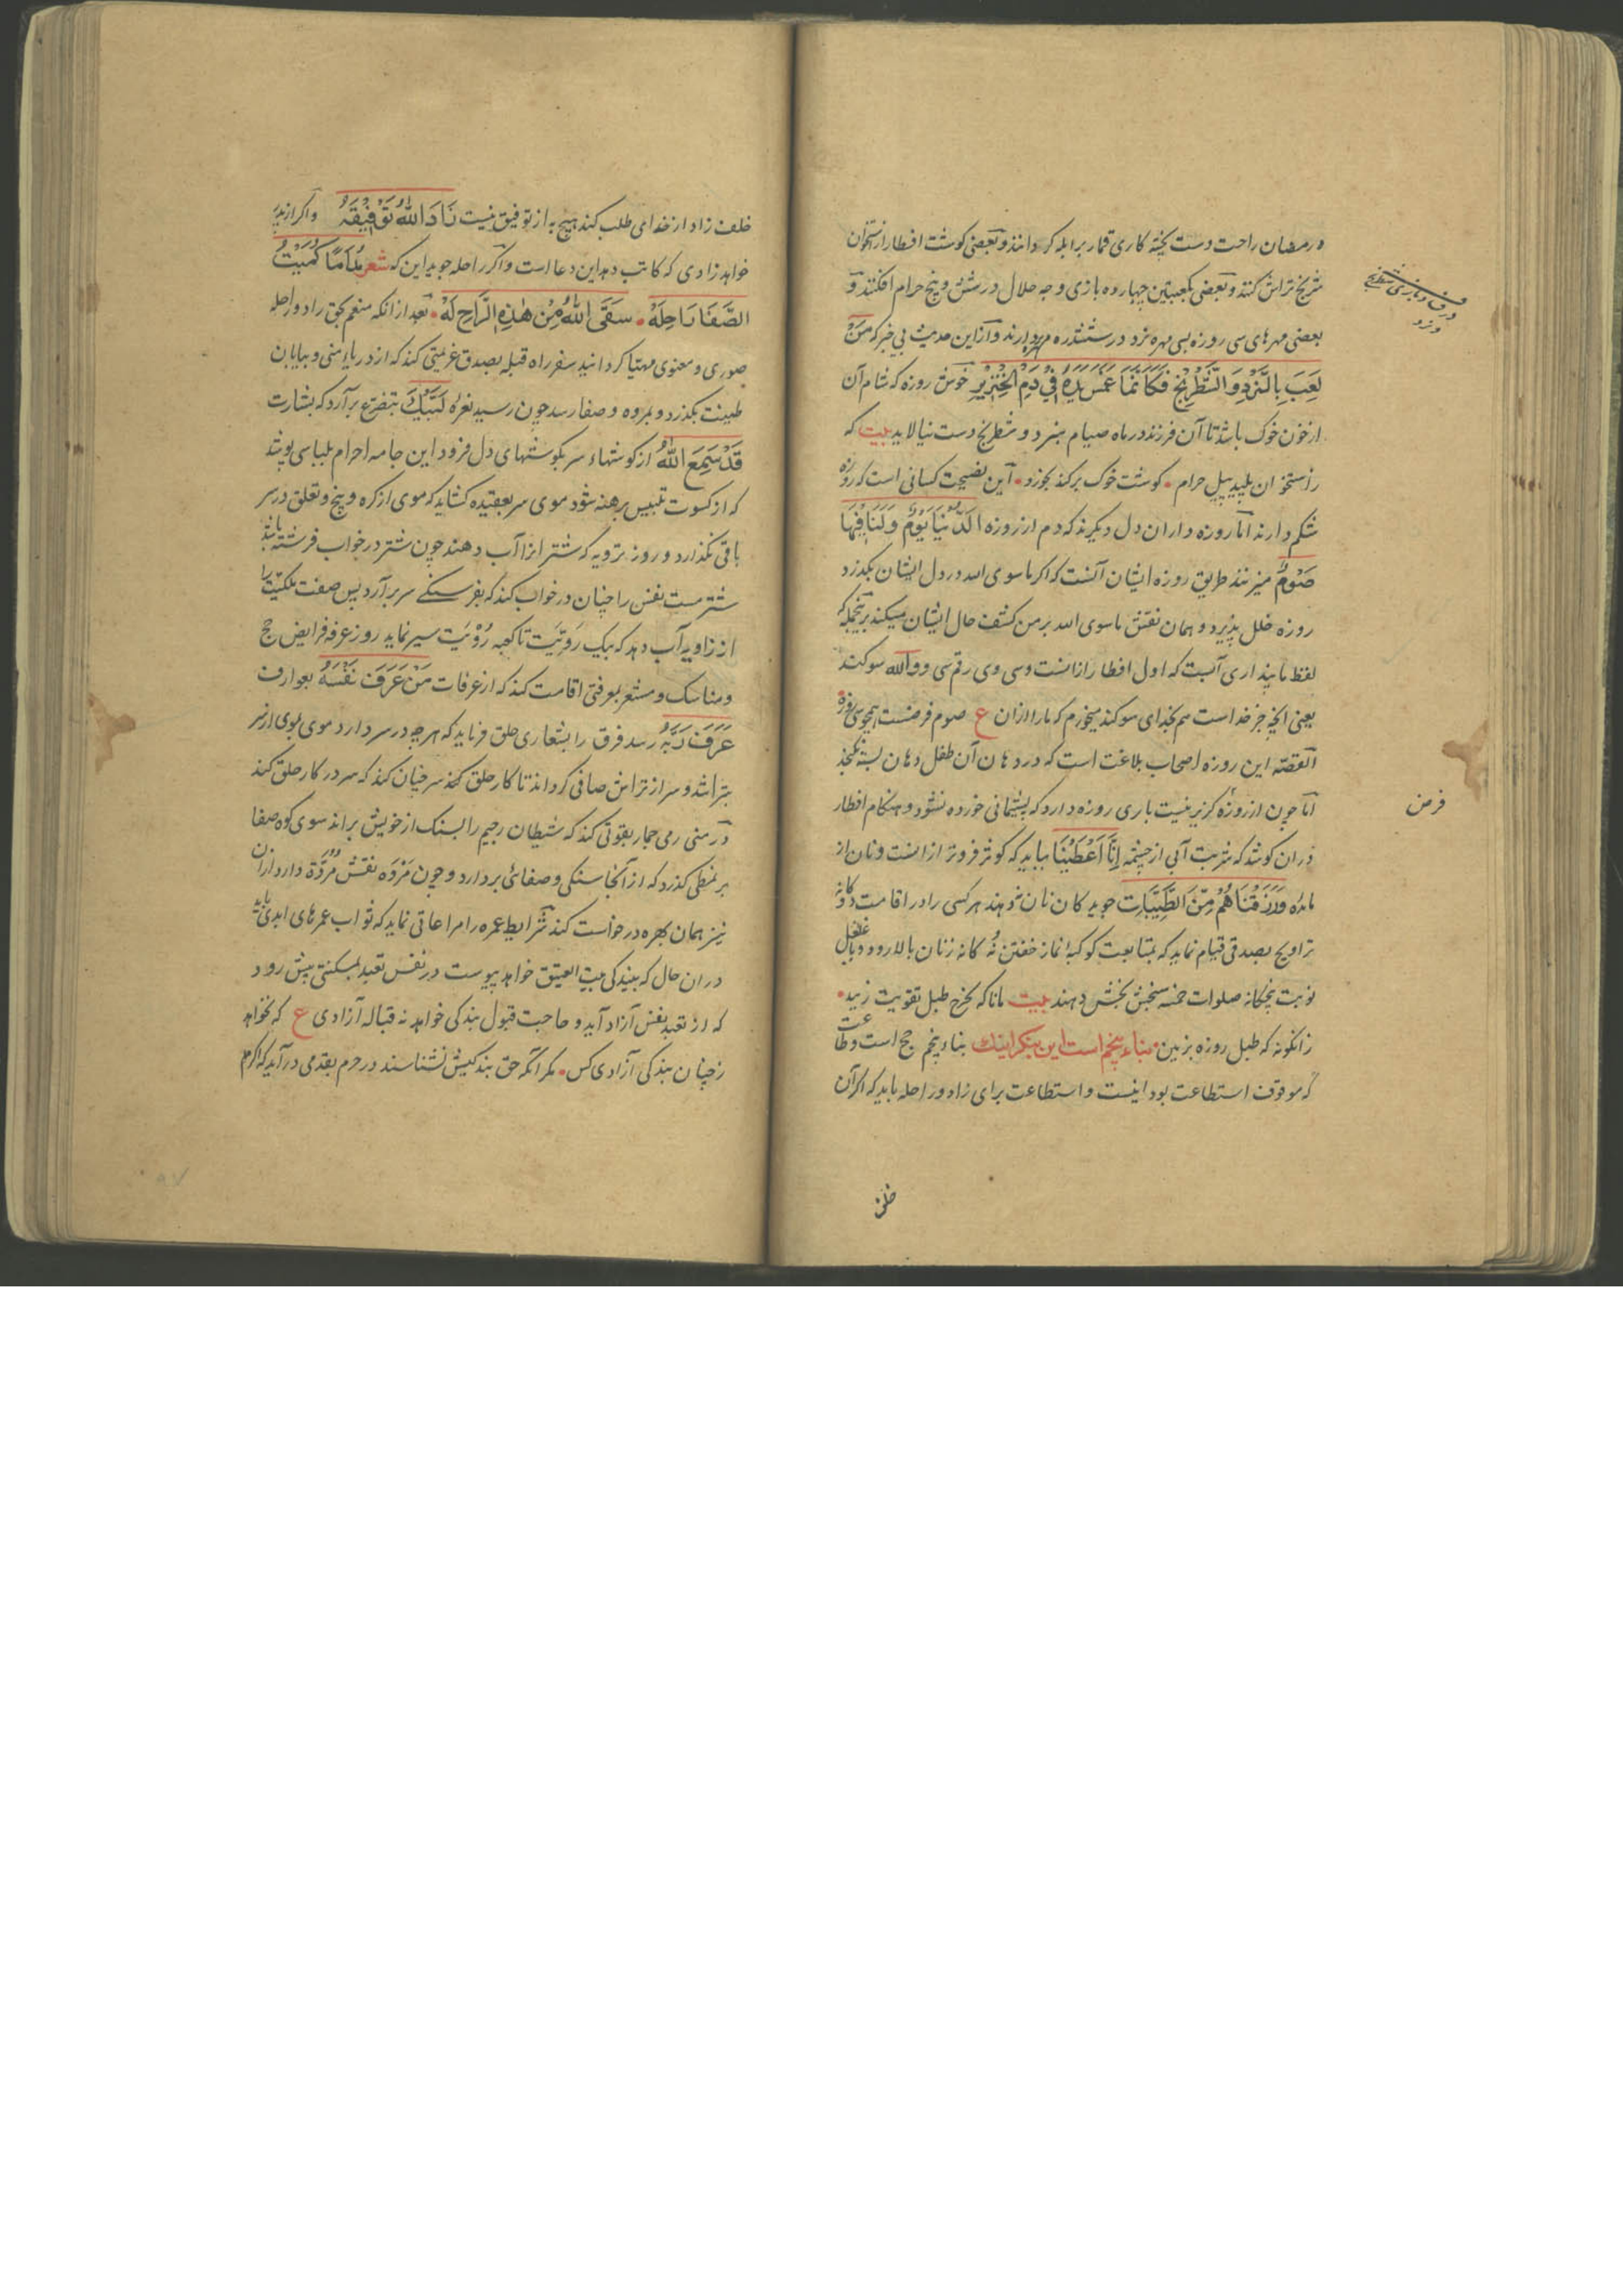 در رمضان راحت دست پخته کاری قمار برابله کردانند و بعضی کوشت افطار از استخوان
شطرنج تراش کنند و بعضی بکعبتین چهارده بازی وجه حلال در شش و پنج حرام افکنند و
بعضی مهرهای سی روزه بسی مهره نرد در ششدره دارند و ازاین حدیث بی خبر که مَنْ
لَعِبَ بِالنَّرْدِ وَالشَّطْرَنْجِ فَكَأَنَّمَا غَمَسَ يَدَهُ فِي دَمِ الْخِنْزِيرِ خوش روزه که شام آن
از خون خوک باشد تا آن فرزند در ماه صیام بنرد و شطرنج دست نیالاید بیت که
ز استخوان پلید پیل حرام • کوشت خوک برکند بخورد • این نصیحت کسانی است که روزه
شکم دارند اما روزه داران دل دیکرند که دم از روزه اَلدُّنْيَا يَوْمٌ وَلَنَا فِيهَا
صَوْمٌ میزنند طریق روزه ایشان آنست که اکر ماسوی الله در دل ایشان بکذرد
روزه خلل پذیرد و همان نقش ماسوی الله بر من کشف حال ایشان میکند
لفظ مانید اری آنست که اول افطار ازانست وسی وی رقم سی و والله سوکند
یعنی انچه جز خداست هم بخدای سوکند میخورم که مارا ازان ع صوم فرضست همچو سی روزه
القصه این روزه اصحاب بلاغت است که در دهان آن طفل دهان بسته نکنجد
اما چون از روزه کزیر نیست باری روزه دارد که پشیمانی خورده نشود و هنکام افطار
دران کوشد که شربت آبی از چشمه اِنَّا اَعْطَيْنَا بیابد که کوثر فروتر ازانست و نان از
مائده وَرَزَقْنَاهُمْ مِنَ الطَّيِّبَاتِ جوید کان نان نه دهند هر کسی را در اقامت دوکانه
تراویح بصدقی قیام نماید که بمتابعت کوکبه نماز خفتن نُه کانه زنان بالا رود و
نوبت پنجکانه صلوات خمسه سنجش بخش دهند بیت مانا که بخرخ طبل تقویت زنید •
زانکونه که طبل روزه بزین • بناء پنجم است این بنکر اینک بناء پنجم حج است وطاعت
که موقوف استطاعت بود اینست و استطاعت برای زاد و راحله باید که اکر آن
خلف
در قمار بازی شطرنج
و نرد
فرض
خلف زاد از خدای طلب کند هیچ به از توفیق نیست زَادَ اللهُ تَوْفِيقَهُ و اکر ازین
خواهد زادی که کاتب دهد این دعا است و اکر راحله جوید این که شعر مُدَامًا كُمَيْتُ
الصَّفَا رَاحِلَهْ • سَقَى اللهُ مِنْ هٰذِهِ الرَّاحِ لَهْ • بعد ازانکه منعم بحق زاد و راحله
صوری و معنوی مهیا کردانید سفر راه قبله بصدق عزیمتی کند که از دریاء منی و بیابان
طینت بکذرد و بمروه و صفا رسد چون رسید نعره لَبَّيْكَ بتضرع برآرد که بشارت
قَدْ سَمِعَ اللهُ از کوشهاء سر بکوشهای دل فرود این جامه احرام بلباسی پوشد
که از کسوت تلبیس برهنه شود موی سر بعقیده کشاید که موی از کره و پیچ و تعلق در سر
باقی نکذارد و روز ترویه که شتر انرا آب دهند چون شتر در خواب فرشته باشد
شتر مست نفس را چنان در خواب کند که بفرسنکی سر برآرد پس صفت ملکیت را
از زاویه آب دهد که بیک رَوِیَت تا کعبه رُؤیَت سیر نماید روز عرفه فرایض حج
و مناسک و مشعر بعرفتی اقامت کند که از عرفات مَنْ عَرَفَ نَفْسَهُ بعوارف
عَرَفَ رَبَّهُ رسد فرق را بشعاری حلق فرماید که هر چه در سر دارد موی بموی از سر
بتراشد و سر از تراش صافی کرداند تا کار حلق کند سر چنان کند که سر در کار حلق کند
در منی رمی جمار بقوتی کند که شیطان رجیم را بسنک از خویش براند سوی کوه صفا
بر نمطی کذرد که از آنجا سنکی و صفائی بردارد و چون مَرْوَه نقش مُرُوَّة دارد ازان
نیز همان بهره درخواست کند شرایط عمره را مراعاتی نماید که ثواب عمرهای ابدی یابد
دران حال که ببندکی بیت العتیق خواهد پیوست در نفس تعبد بمسکنتی پیش رود
که از تعبد نفس آزاد آید و حاجت قبول بندکی خواهد نه قباله آزادی ع که نخواهد
ز چنان بندکی آزادی کس • مکر آنکه حق بندکیش نشناسند در حرم بقدمی درآید که اکرم